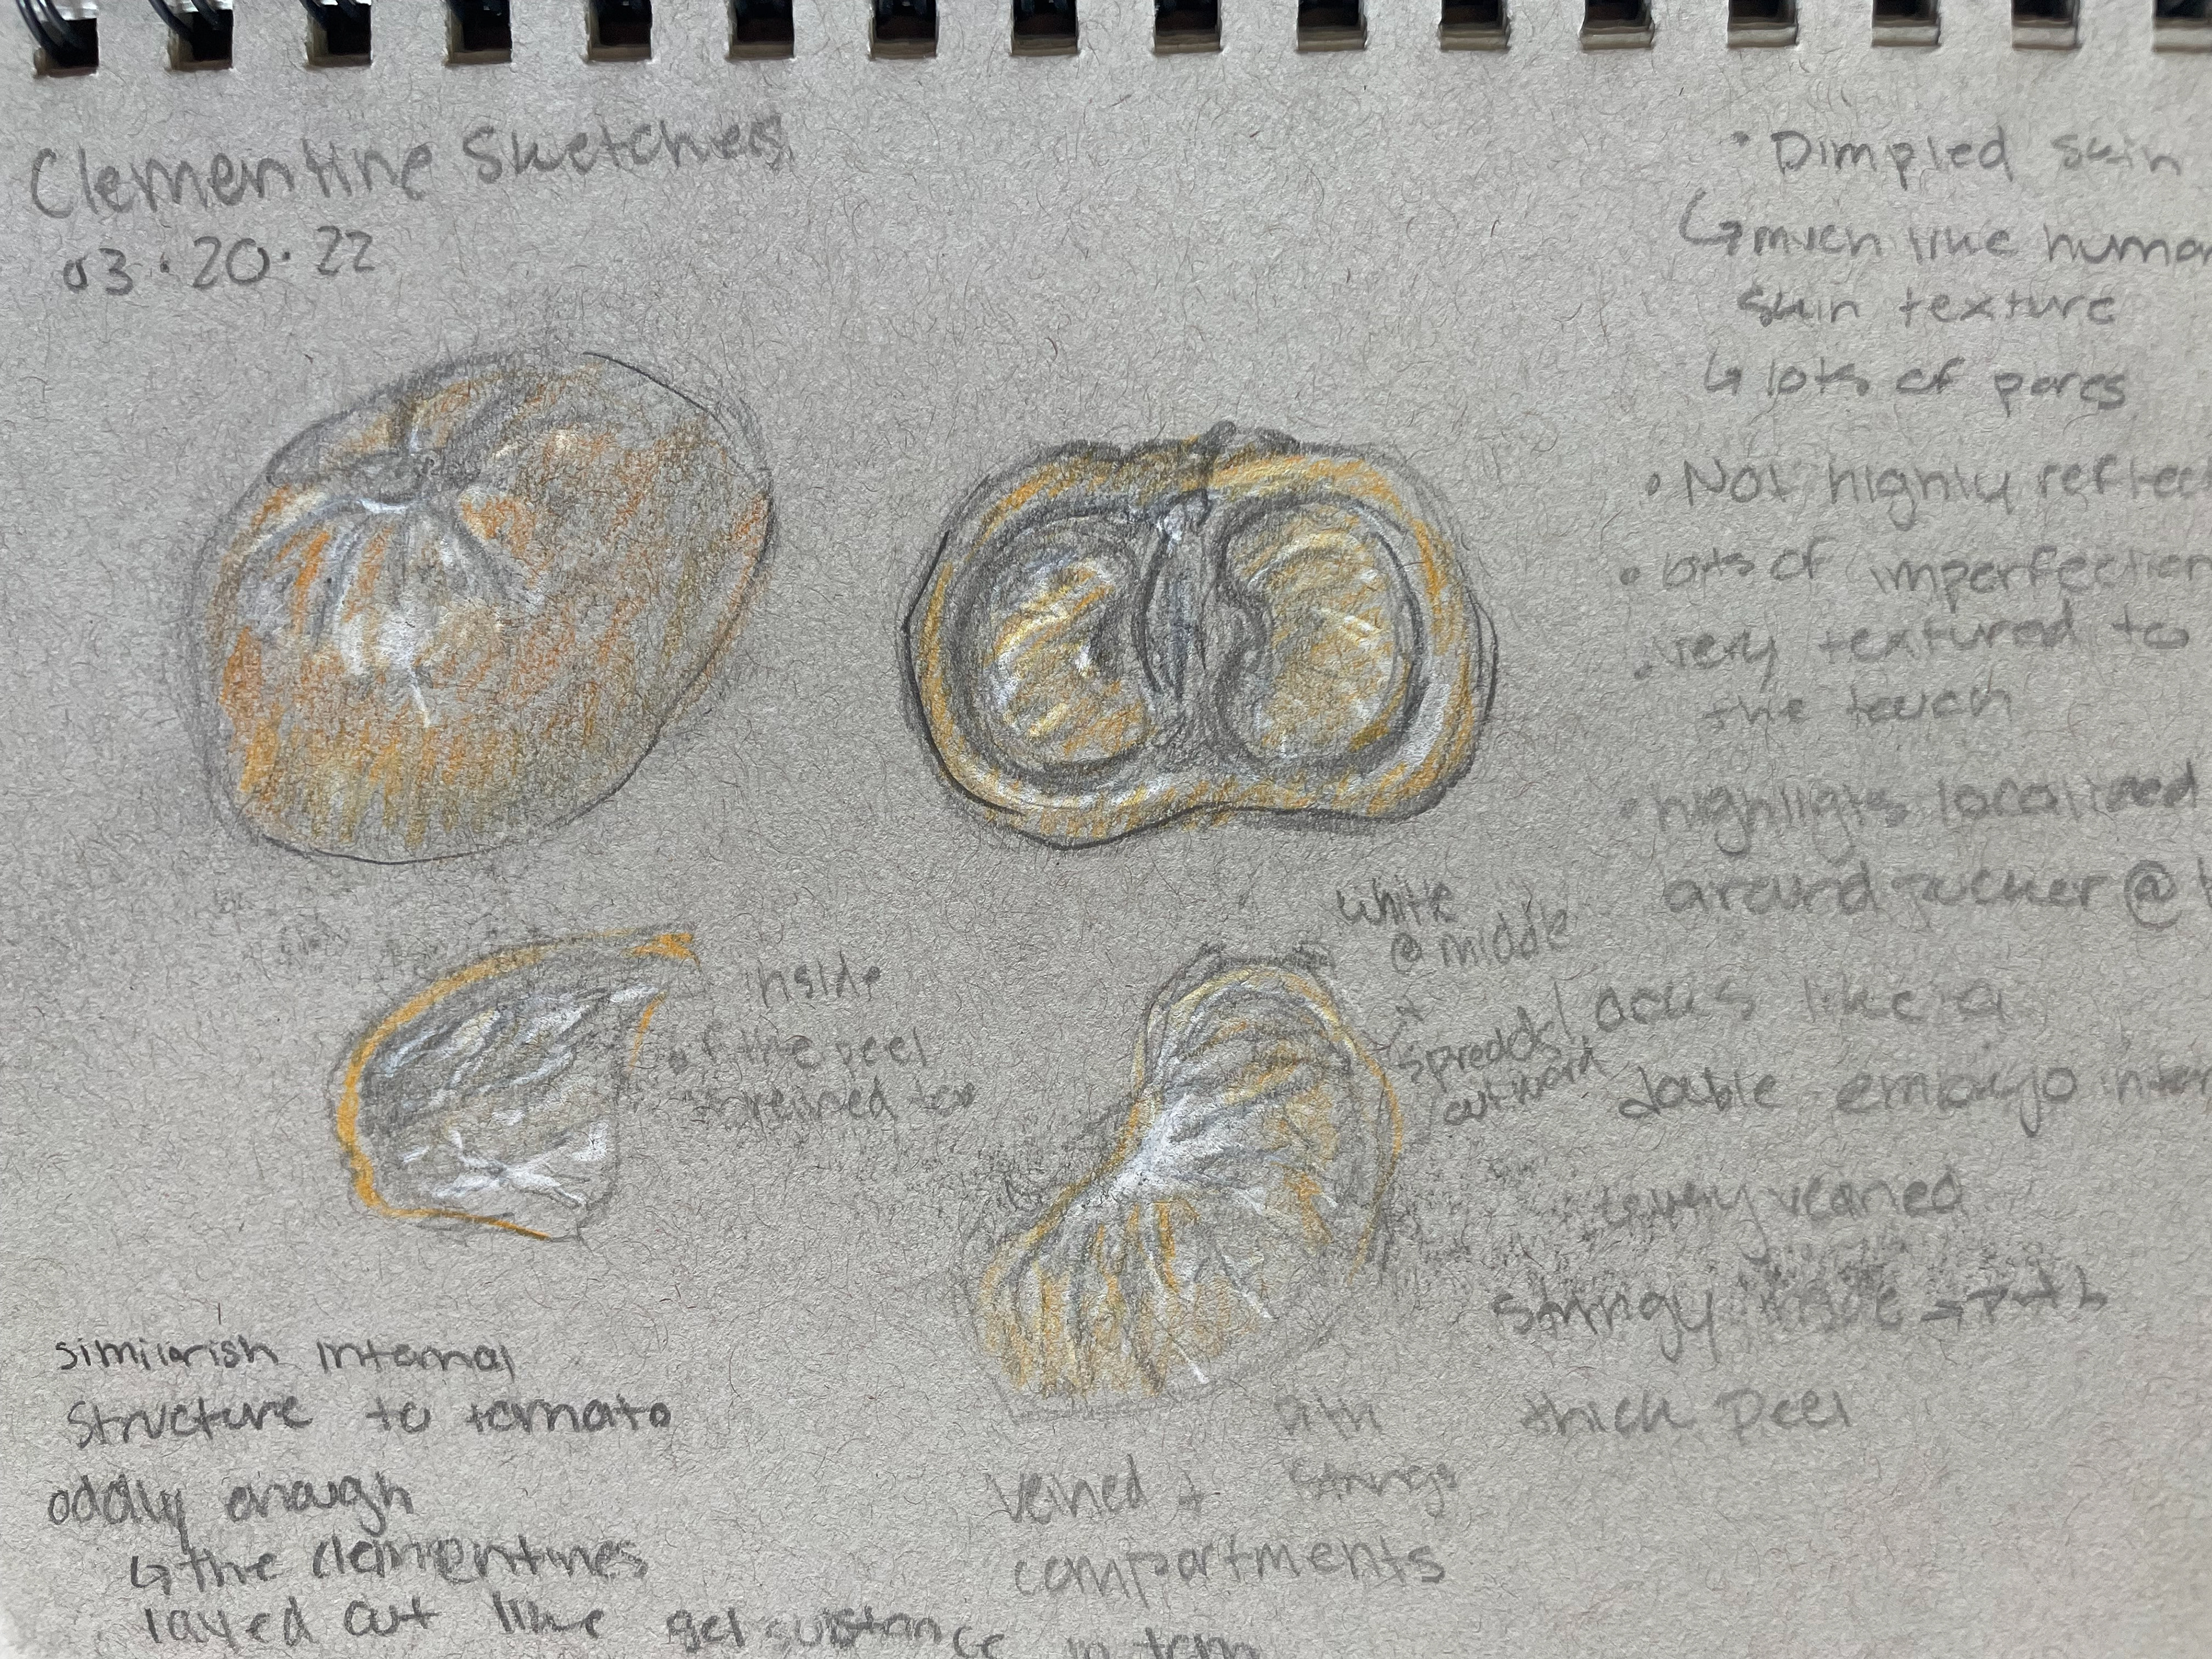 Clementine Sketches
03·20·22
• Dimpled skin
↳ much like human
skin texture
↳ lots of pores
• Not highly reflect
• lots of imperfection
• very textured to
the touch
• highlights localized
around pucker @
white
@ middle
+
spreads
outward
looks like a
double embryo inter
veined
stringy inside → pith
thick peel
inside
of the peel
veined too
similarish internal
structure to tomato
oddly enough
↳ the clementines
layed out like gel substance in tom
pith
veined + strings
compartments